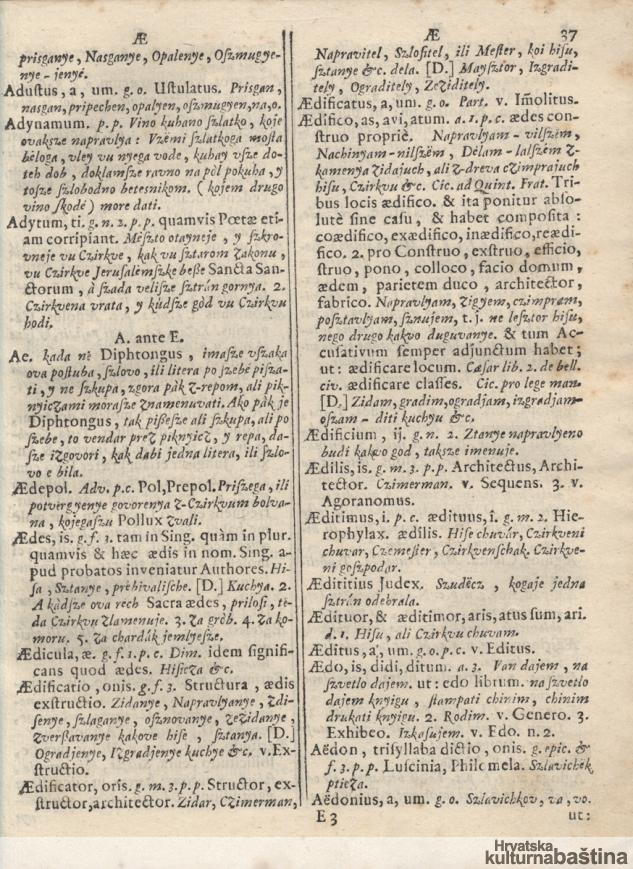 Æ
prisganye, Nasganye, Opalenye, Oszmugye-
nye - jenyé.
Adustus, a, um. g. o. Ustulatus. Prisgan,
nasgan, pripechen, opalyen, oszmugyen, na, o.
Adynamum. p. p. Vino kuhano szlatko, koje
ovaksze napravlya: Vzémi szlatkoga mosta
béloga, vley vu nyega vode, kuhay vsze do-
teh dob, doklamsze ravno na pòl pokuha, y
tosze szlobodno betesnikom. (kojem drugo
vino skodé) more dati.
Adytum, ti. g. n. 2. p. p. quamvis Poëtæ eti-
am corripiant. Mészto otayneje, y szkro-
vneje vu Czirkve, kak vu sztarom Zakonu,
vu Czirkve Jerusalémszke beße Sancta San-
ctorum, à szada velisze sztrán gornya. 2.
Czirkvena vrata, y kùdsze gòd vu Czirkvu
hodi.
A. ante E.
Ae. kada nè Diphtongus, imasze vszaka
ova postuba, szlovo, ili litera po szebé pisza-
ti, y ne szkupa, zgora pàk z-repom, ali pik-
nyiczami morasze znamenuvati. Ako pàk je
Diphtongus, tak pißesze ali szkupa, ali po
szebe, to vendar prez piknyicz, y repa, da-
sze izgovori, kak dabi jedna litera, ili szlo-
vo e bila.
Ædepol. Adv. p. c. Pol, Prepol. Priszega, ili
potvergyenye govorenya z-Czirkvum bolva-
na, kojegaszu Pollux zvali.
Ædes, is. g. f. 3. tam in Sing. quàm in plur.
quamvis & hæc ædis in nom. Sing. a-
pud probatos inveniatur Authores. Hi-
sa, Sztanye, prèhivalische. [D.] Kuchya. 2.
A kàdsze ova rech Sacra ædes, prilosi, te-
da Czirkvu zlamenuje. 3. Za gròb. 4. Za ko-
moru. 5. Za chardák jemlyesze.
Ædicula, æ. g. f. 1. p. c. Dim. idem signifi-
cans quod ædes. Hisicza &c.
Ædificatio, onis. g. f. 3. Structura, ædis
exstructio. Zidanye, Napravlyanye, Zdi-
senye, szlaganye, osznovanye, zezidanye,
zverßavanye kakove hise, sztanya. [D.]
Ogradjenye, Izgradjenye kuchye &c. v. Ex-
structio.
Ædificator, oris. g. m. 3. p. p. Structor, ex-
structor, architector. Zidar, Czimerman,
Æ 37
Napravitel, Szlositel, ili Mester, koi hisu,
sztanye &c. dela. [D.] Maysztor, Izgradi-
tely, Ograditely, Zeziditely.
Ædificatus, a, um. g. o. Part. v. Im̃olitus.
Ædifico, as, avi, atum. a. 1. p. c. ædes con-
struo propriè. Napravlyam - vilszém,
Nachinyam - nilszém, Délam - lalszém z-
kamenya zidajuch, ali z-dreva czimprajuch
hisu, Czirkvu &c. Cic. ad Quint. Frat. Tri-
bus locis ædifico. & ita ponitur abso-
lutè sine casu, & habet composita:
coædifico, exædifico, inædifico, reædi-
fico. 2. pro Construo, exstruo, efficio,
struo, pono, colloco, facio domum,
ædem, parietem duco, architector,
fabrico. Napravlyam, zigyem, czimpram,
posztavlyam, sznujem, t. j. ne lesztor hisu,
nego drugo kakvo duguvanye. & tum Ac-
cusativum semper adjunctum habet;
ut: ædificare locum. Cæsar lib. 2. de bell.
civ. ædificare classes. Cic. pro lege man.
[D.] Zidam, gradim, ogradjam, izgradjam-
oszam - diti kuchyu &c.
Ædificium, ij. g. n. 2. Ztanye napravlyeno
budi kakvo god, taksze imenuje.
Ædilis, is. g. m. 3. p. p. Architectus, Archi-
tector. Czimerman. v. Sequens. 3. v.
Agoranomus.
Æditimus, i. p. c. ædituus, î. g. m. 2. Hie-
rophylax. ædilis. Hise chuvár, Czirkveni
chuvar, Czemester, Czirkvenschak. Czirkve-
ni goszpodar.
Ædititius Judex. Szudëcz, kogaje jedna
sztrán odebrala.
Ædituor, & æditimor, aris, atus sum, ari.
d. 1. Hisu, ali Czirkvu chuvam.
Æditus, a, um. g. o. p. c. v. Editus.
Ædo, is, didi, ditum. a. 3. Van dajem, na
szvetlo dajem. ut: edo librum. na szvetlo
dajem knyigu, stampati chinim, chinim
drukati knyigu. 2. Rodim. v. Genero. 3.
Exhibeo. Izkasujem. v. Edo. n. 2.
Aëdon, trisyllaba dictio, onis. g. epic. &
f. 3. p. p. Luscinia, Philomela. Szlavichëk
pticza.
Aëdonius, a, um. g. o. Szlavichkov, va, vo.
E 3 ut:
Hrvatska
kulturnabaština